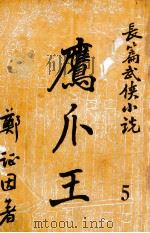 長篇武俠小説
鷹爪王
5
鄭証因著
mtoou.info